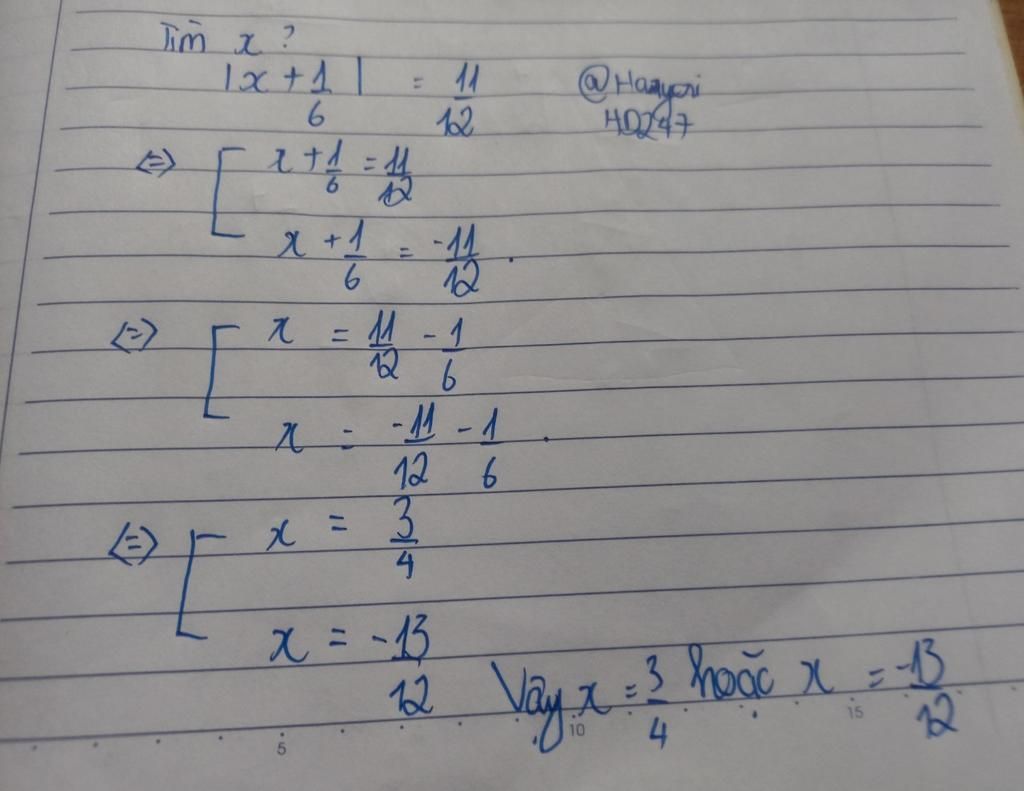 Tìm x ?
|x + 1/6| = 11/12 @Hanyori
HD247
<=> [ x + 1/6 = 11/12
x + 1/6 = -11/12 .
<=> [ x = 11/12 - 1/6
x = -11/12 - 1/6 .
<=> [ x = 3/4
x = -13/12
Vậy x = 3/4 hoặc x = -13/12
5 10 15